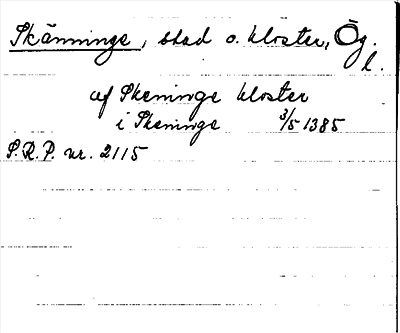 Skänninge, stad o. kloster, Ög.
l.
af Skeninge kloster
i Skeninge 3/5 1385
S.R.P. nr. 2115